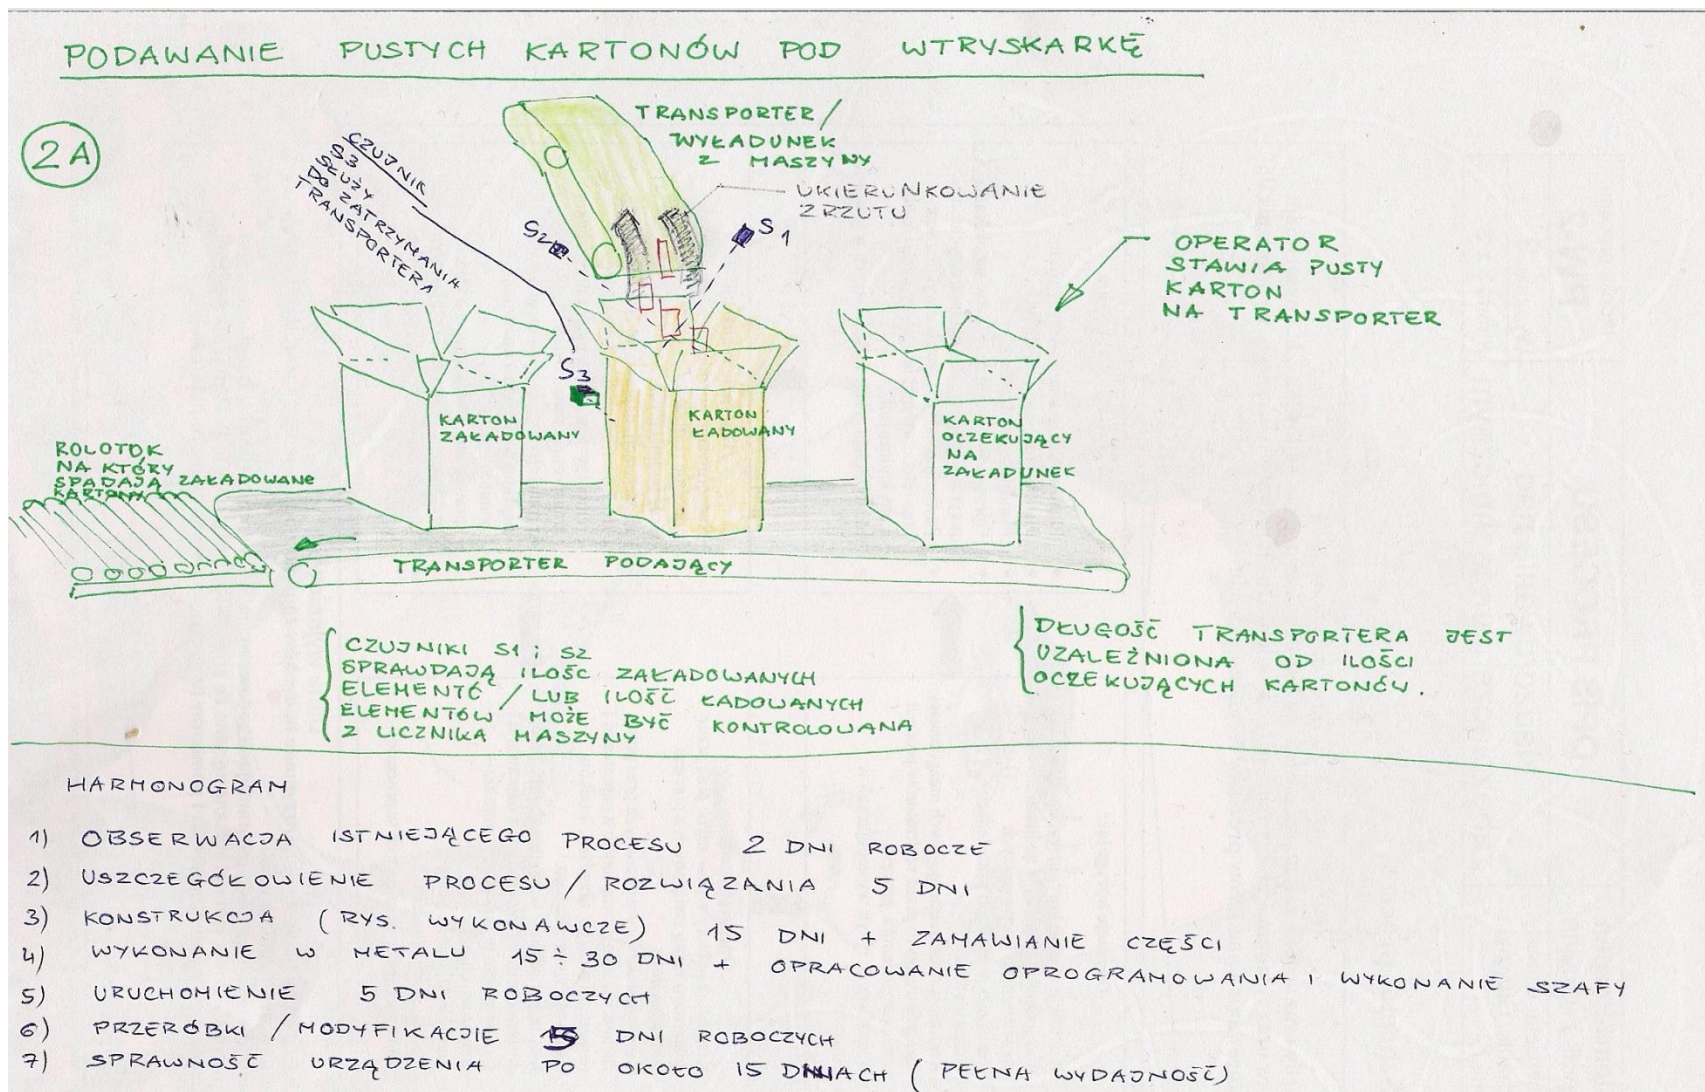 PODAWANIE PUSTYCH KARTONÓW POD WTRYSKARKĘ
2A
CZUJNIK
S3
SŁUŻY
DO ZATRZYMANIA
TRANSPORTERA
TRANSPORTER /
WYŁADUNEK
Z MASZYNY
UKIERUNKOWANIE
ZRZUTU
S2
S1
OPERATOR
STAWIA PUSTY
KARTON
NA TRANSPORTER
S3
KARTON
ZAŁADOWANY
KARTON
ŁADOWANY
KARTON
OCZEKUJĄCY
NA
ZAŁADUNEK
ROLOTOK
NA KTÓRY
SPADAJĄ ZAŁADOWANE
KARTONY
TRANSPORTER PODAJĄCY
CZUJNIKI S1 i S2
SPRAWDAJĄ ILOŚĆ ZAŁADOWANYCH
ELEMENTÓ / LUB ILOŚĆ ŁADOWANYCH
ELEMENTÓW MOŻE BYĆ KONTROLOWANA
Z LICZNIKA MASZYNY
DŁUGOŚĆ TRANSPORTERA JEST
UZALEŻNIONA OD ILOŚCI
OCZEKUJĄCYCH KARTONÓW.
HARMONOGRAM
1) OBSERWACJA ISTNIEJĄCEGO PROCESU 2 DNI ROBOCZE
2) USZCZEGÓŁOWIENIE PROCESU / ROZWIĄZANIA 5 DNI
3) KONSTRUKCJA (RYS. WYKONAWCZE) 15 DNI + ZAMAWIANIE CZĘŚCI
4) WYKONANIE W METALU 15 ÷ 30 DNI + OPRACOWANIE OPROGRAMOWANIA I WYKONANIE SZAFY
5) URUCHOMIENIE 5 DNI ROBOCZYCH
6) PRZERÓBKI / MODYFIKACJIE DNI ROBOCZYCH
7) SPRAWNOŚĆ URZĄDZENIA PO OKOŁO 15 DNIACH (PEŁNA WYDAJNOŚĆ)